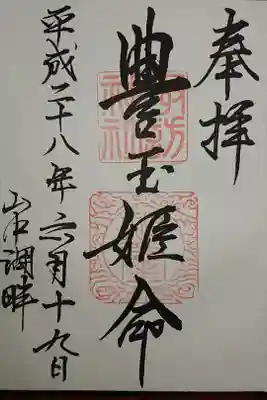 奉拝
豊玉姫命
諏訪神社
平成二十八年六月十九日
山中湖畔